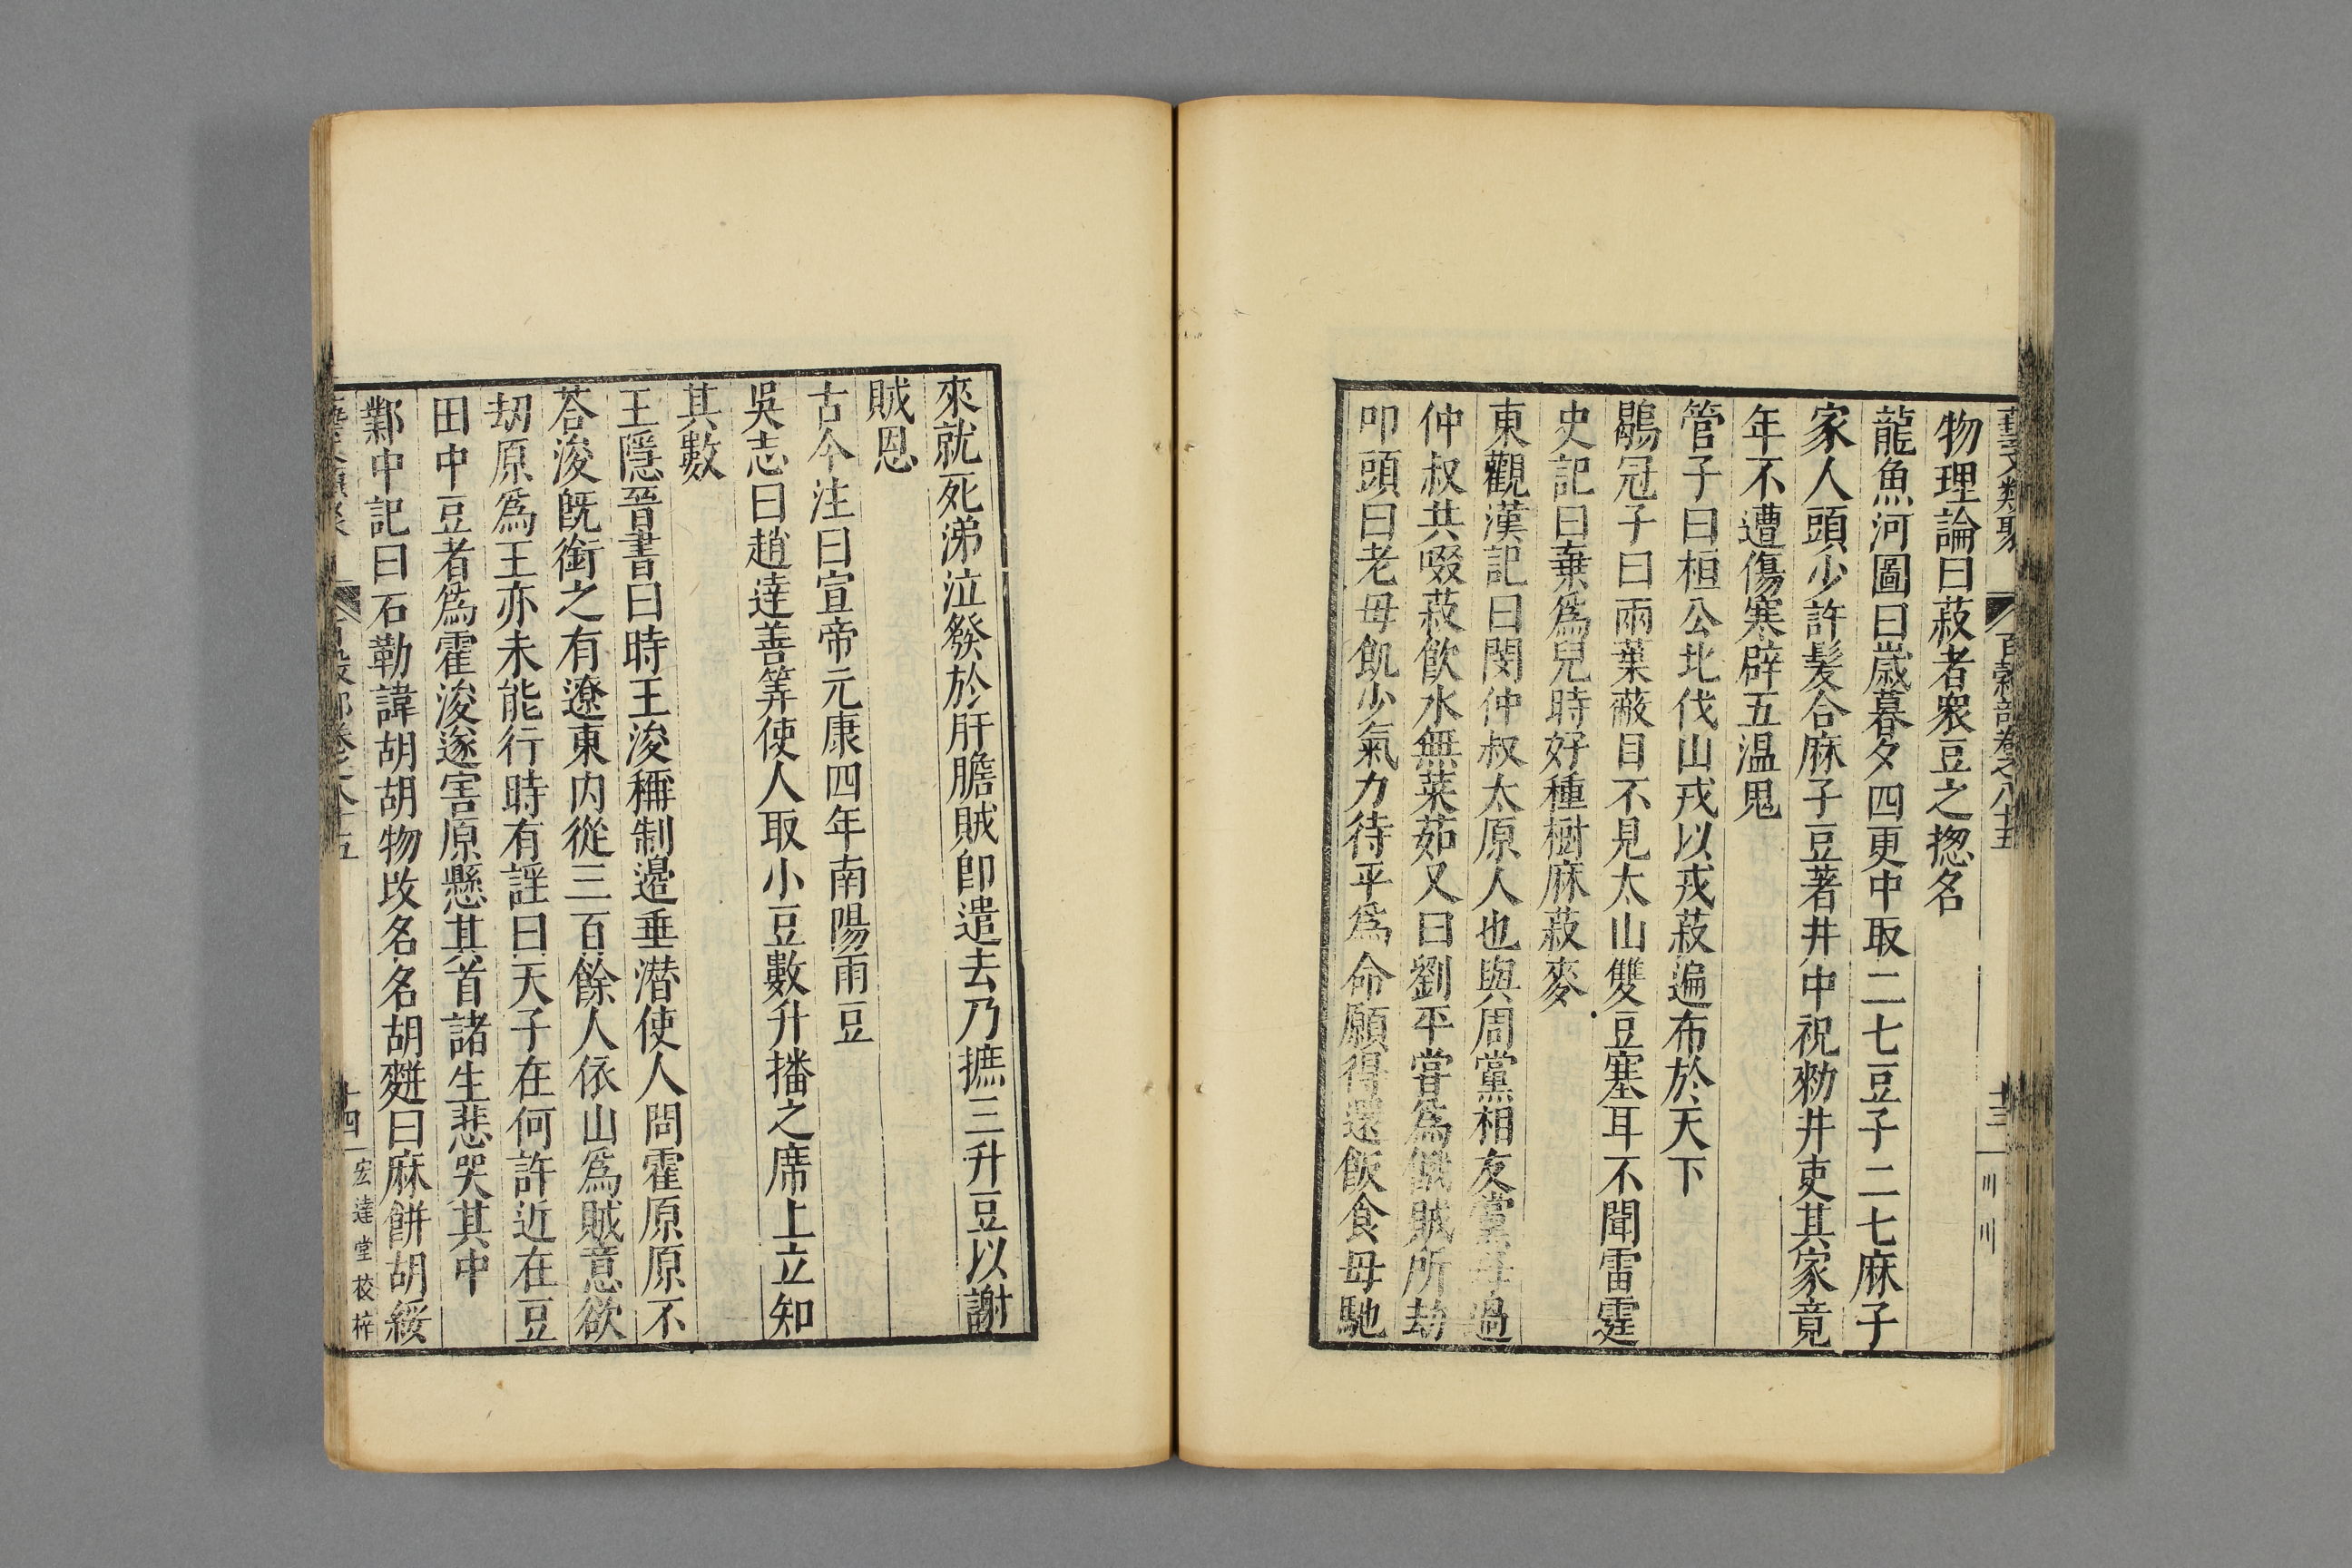 藝文類聚 百穀部卷之八十五 十三
物理論曰菽者衆豆之揔名
龍魚河圖曰歲暮夕四更中取二七豆子二七麻子
家人頭少許髮合麻子豆著井中祝勑井吏其家竟
年不遭傷寒辟五温鬼
管子曰桓公北伐山戎以戎菽遍布於天下
鶡冠子曰兩葉蔽目不見太山雙豆塞耳不聞雷霆
史記曰棄爲兒時好種樹麻菽麥
東觀漢記曰閔仲叔太原人也與周黨相友黨每過
仲叔共啜菽飲水無菜茹又曰劉平嘗爲餓賊所劫
叩頭曰老母飢少氣力待平爲命願得還飯食母馳
來就死涕泣發於肝膽賊卽遣去乃摭三升豆以謝
賊恩
古今注曰宣帝元康四年南陽雨豆
吳志曰趙達善筭使人取小豆數升播之席上立知
其數
王隱晉書曰時王浚稱制邉垂潜使人問霍原原不
荅浚旣銜之有遼東内從三百餘人依山爲賊意欲
刼原爲王亦未能行時有謡曰天子在何許近在豆
田中豆者爲霍浚遂害原懸其首諸生悲哭其中
鄴中記曰石勒諱胡胡物攺名名胡麰曰麻餅胡綏
藝文類聚 百穀部卷之八十五 十四 宏達堂校梓